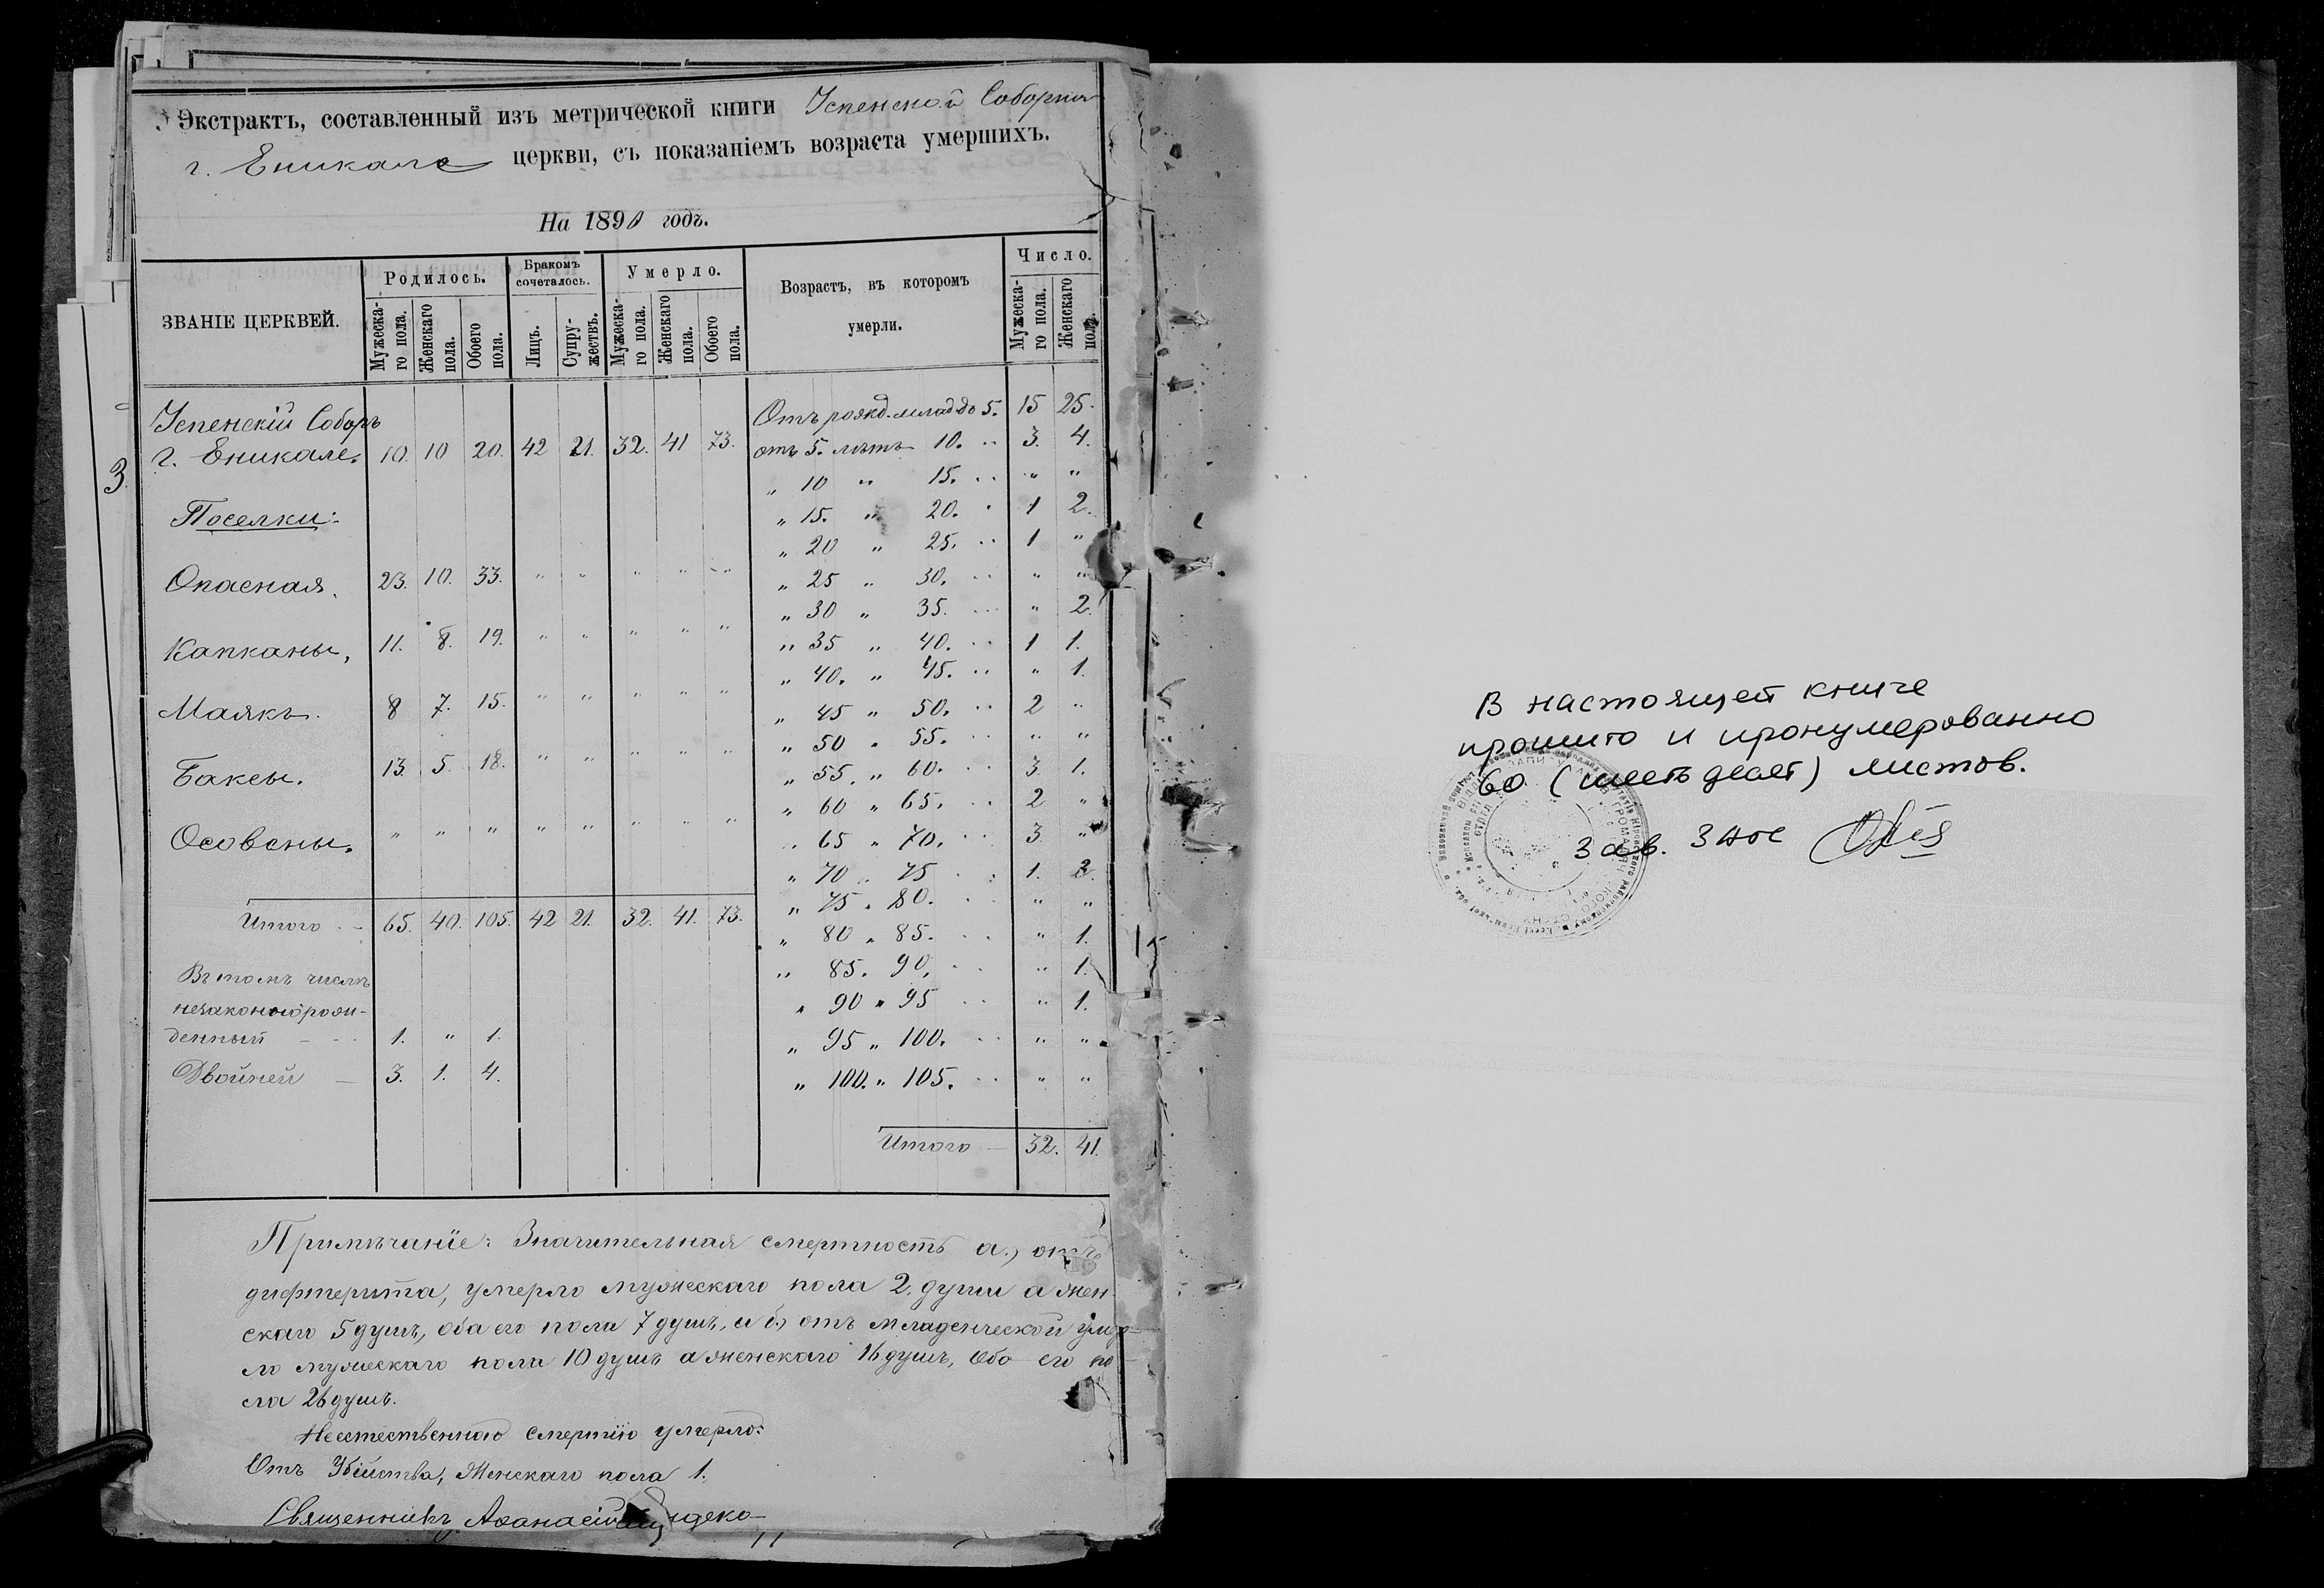 Экстрактъ, составленный изъ метрической книги Успенской Соборной
г. Еникале церкви, съ показаніемъ возраста умершихъ.
На 1890 годъ.
ЗВАНІЕ ЦЕРКВЕЙ. Родилось. Бракомъ сочеталось. Умерло. Возрастъ, въ которомъ умерли. Число.
Мужеска-го пола. Женскаго пола. Обоего пола. Лицъ. Супру-жествъ. Мужеска-го пола. Женскаго пола. Обоего пола. Мужеска-го пола. Женскаго пола.
Успенскій Соборъ
г. Еникале. 10. 10 20. 42 21. 32. 41 73.
Поселки:
Опасная. 23. 10. 33. " " " " "
Капканы, 11. 8. 19. " " " " "
Маякъ. 8 7. 15. " " " " "
Баксы. 13. 5. 18. " " " " "
Осовены. " " " " " " " "
Итого 65. 40. 105. 42 21. 32. 41. 73.
Въ томъ числѣ
незаконнорож-
денный 1. " 1.
Двойней 3. 1. 4.
Отъ рожд. до 5. 15 25.
отъ 5. лѣтъ 10. 3. 4.
" 10 " 15. " "
" 15. " 20. 1 2.
" 20 " 25. 1 "
" 25 " 30. " "
" 30 " 35. " 2.
" 35 " 40. 1 1.
" 40. " 45. " 1.
" 45 " 50. 2 "
" 50 " 55. " "
" 55. " 60. 3. 1.
" 60 " 65. 2 "
" 65 " 70. 3. "
" 70 " 75 1. 2.
" 75 " 80. " "
" 80 " 85. " 1.
" 85. 90. " 1.
" 90 " 95 " 1.
" 95 " 100. " "
" 100. " 105. " "
Итого 32. 41.
Примѣчаніе: Значительная смертность а.) отъ
дифтерита, умерло мужескаго пола 2. души а жен-
скаго 5 душъ, обаего пола 7 душъ, а б.) отъ младенческой умер-
ло мужескаго пола 10 душъ а женскаго 16 душъ, обоего по
ла 26 душъ.
Неестественною смертію умерло:
Отъ Убійства, Женскаго пола 1.
Священникъ Аѳанасій
3.
В настоящей книге
прошито и пронумерованно
60 (шестьдесят) листов.
Зав.